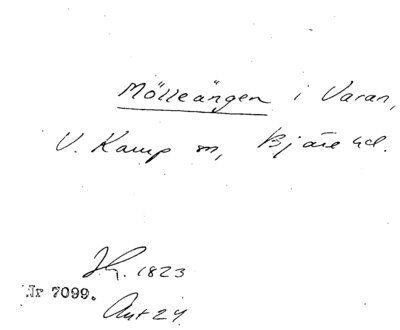 Mölleängen i Varan,
V. Karup sn, Bjäre hd.
Jh. 1823
Nr 7099.
Ant 24